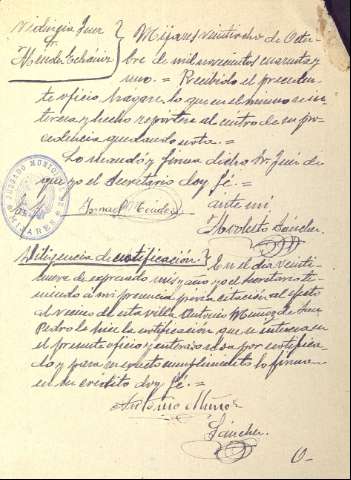 Providencia Juez
Sr
Mendez Echániz
Mijares veintiocho de Octu-
bre de mil novecientos cuarenta y
uno. = Recibido el preceden-
te oficio hagase lo que en el mismo se in-
teresa y hecho reportese al centro de su pro-
cedencia quedando nota. =
Lo mandó y firma dicho Sr. Juez de
que yo el Secretario doy fé. =
JUZGADO MUNICIPAL
MIJARES
ante mi
Sánchez
Diligencia de notificación.
En el dia veinti
nueve de expresado mes y año yo el secretario te
niendo a mi presencia previa citación al efecto
al vecino de esta villa Antonio Muñoz de San
Pedro le hice la notificación que se interesa en
el presente oficio y enterado se da por notifica
do y para su exacto cumplimiento lo firma
en su credito doy fé. =
Antonio Muñoz
Sánchez